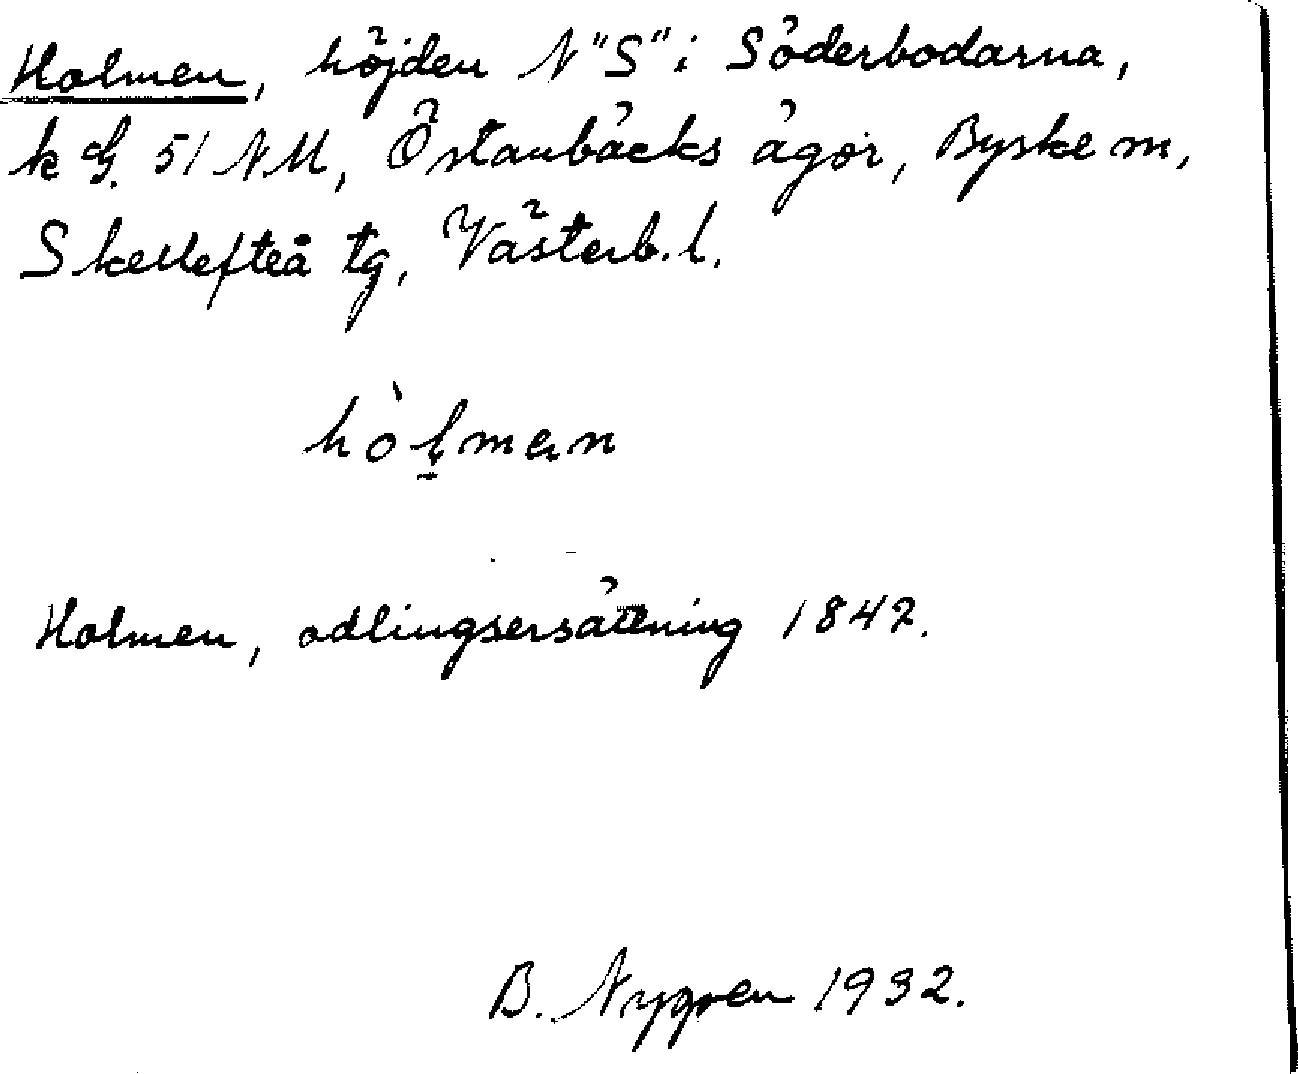 Holmen, höjden N "S" i Söderbodarna,
k G. 51 NM, Östanbäcks ägor, Byske m,
Skellefteå tg, Västerb. l.
hòḷmen
Holmen, odlingsersättning 1842.
B. Nygren 1932.